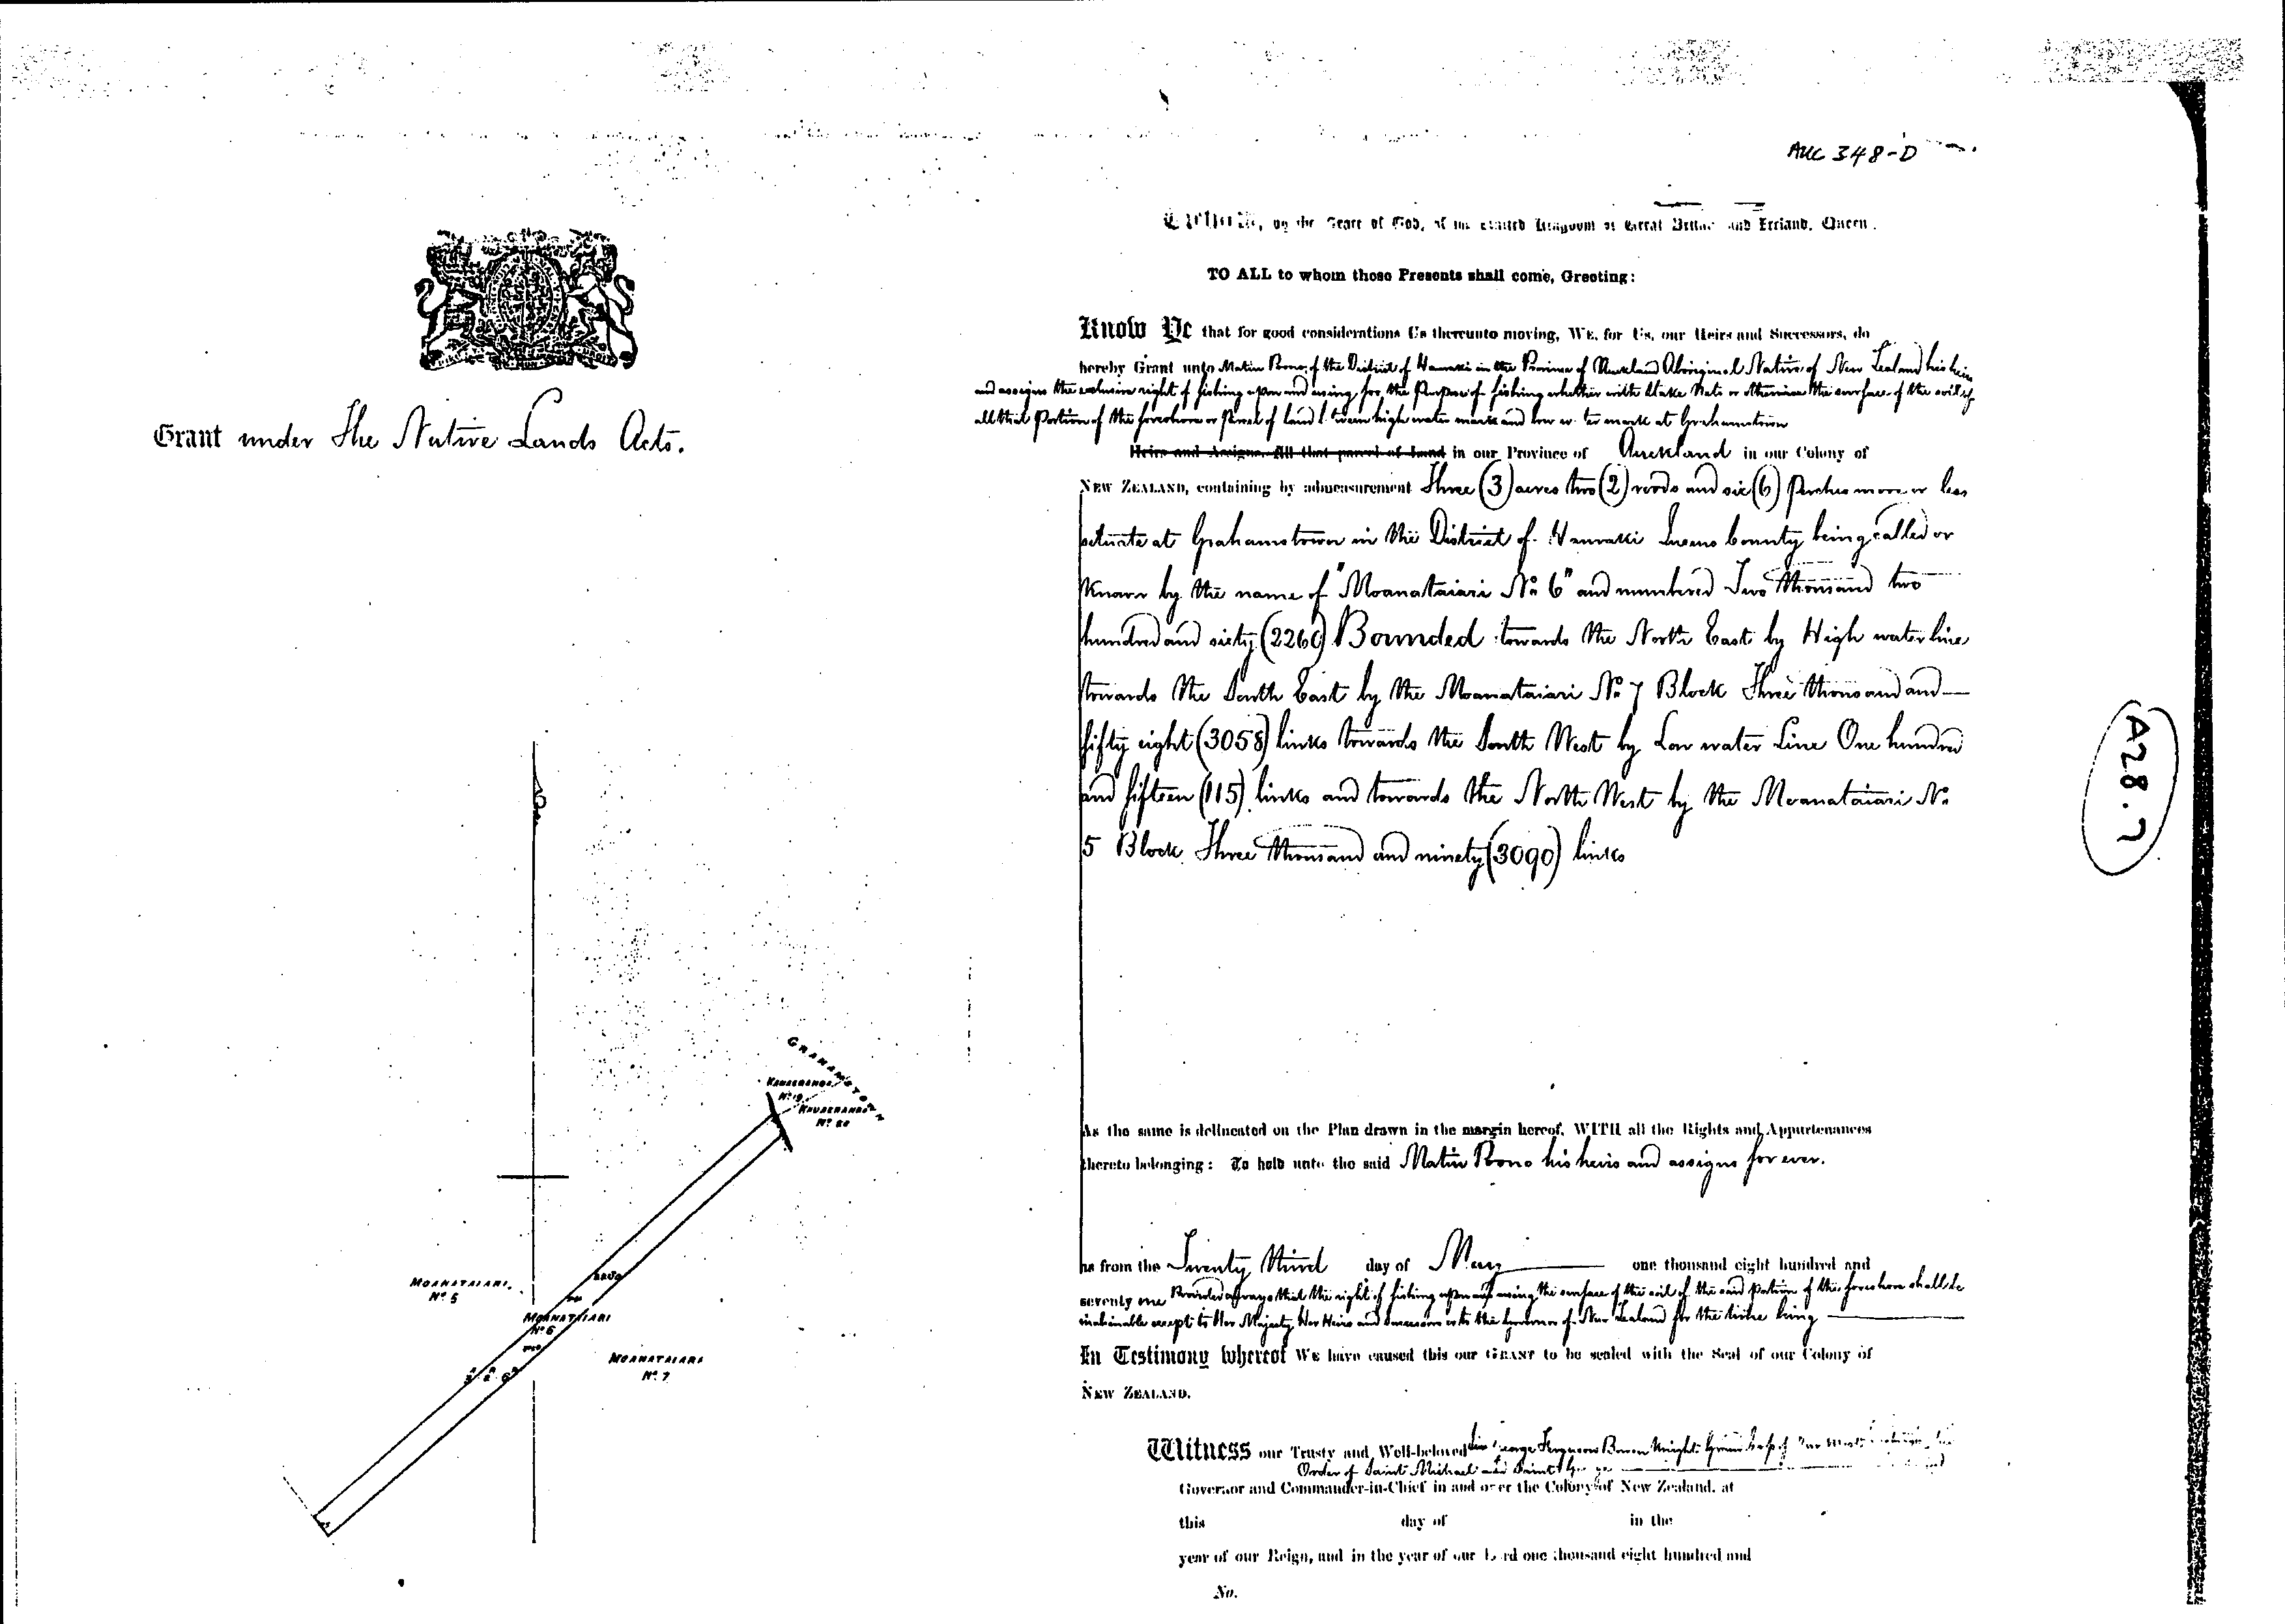 AUC 348-D
Grant under The Native Lands Acts.
by the Grace of God, of the United Kingdom of Great Britain and Ireland, Queen.
TO ALL to whom these Presents shall come, Greeting:
Know Ye that for good considerations Us thereunto moving, WE, for Us, our Heirs and Successors, do
hereby Grant unto Matiu Poono of the District of Hauraki in the Province of Auckland Aboriginal Native of New Zealand his heirs
and assigns the exclusive right of fishing upon and using for the purpose of fishing whether with stake nets or otherwise the surface of the soil of
all that portion of the foreshore or parcel of land between high water mark and low water mark at Grahamstown
Heirs and Assigns, All that parcel of Land in our Province of Auckland in our Colony of
NEW ZEALAND, containing by admeasurement Three (3) acres two (2) roods and six (6) perches more or less
situate at Grahamstown in the District of Hauraki Queens County being called or
known by the name of "Moanataiari No 6" and numbered Two thousand two
hundred and sixty (2260) Bounded towards the North East by High water line
towards the South East by the Moanataiari No 7 Block Three thousand and
fifty eight (3058) links towards the South West by Low water Line One hundred
and fifteen (115) links and towards the North West by the Moanataiari No
5 Block Three thousand and ninety (3090) links
A28.7
GRAHAMSTOWN
KAUAERANGA
No 19
KAUAERANGA
No 20
MOANATAIARI
No 5
MOANATAIARI
No 6
MOANATAIARI
No 7
As the same is delineated on the Plan drawn in the margin hereof, WITH all the Rights and Appurtenances
thereto belonging: To hold unto the said Matiu Poono his heirs and assigns for ever.
as from the Twenty third day of May one thousand eight hundred and
seventy one Provided always that the right of fishing upon and using the surface of the soil of the said portion of the foreshore shall be
inalienable except to Her Majesty Her Heirs and Successors or to the Governor of New Zealand for the time being
In Testimony whereof WE have caused this our GRANT to be sealed with the Seal of our Colony of
NEW ZEALAND.
Witness our Trusty and Well-beloved Sir George Ferguson Bowen Knight Grand Cross of Our Most
Order of Saint Michael and Saint George
Governor and Commander-in-Chief in and over the Colony of New Zealand, at
this day of in the
year of our Reign, and in the year of our Lord one thousand eight hundred and
No.